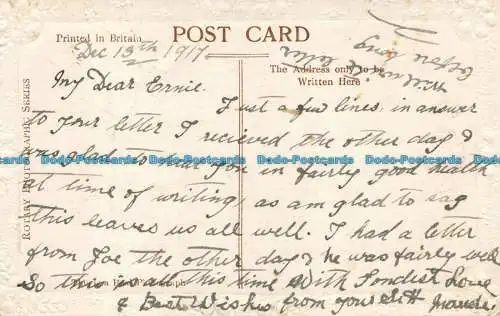 POST CARD
Printed in Britain
Dec 13th 1917
The Address only to be
Written Here
letter
before long
My Dear Ernie.
Just a few lines, in answer
to your letter I recieved the other day &
was glad to hear you in fairly good health
at time of writing, as am glad to say
this leaves us all well. I had a letter
from Joe the other day & he was fairly well
So this is all this time with Fondest Love
& Best Wishes from your Sist Maude.
ROTARY PHOTOGRAPHIC SERIES
Dodo-Postcards Dodo-Postcards Dodo-Postcards Dodo-Postcards Dodo-Postcards